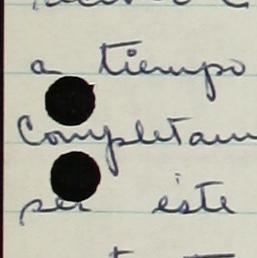 a tiempo
completam
ser éste